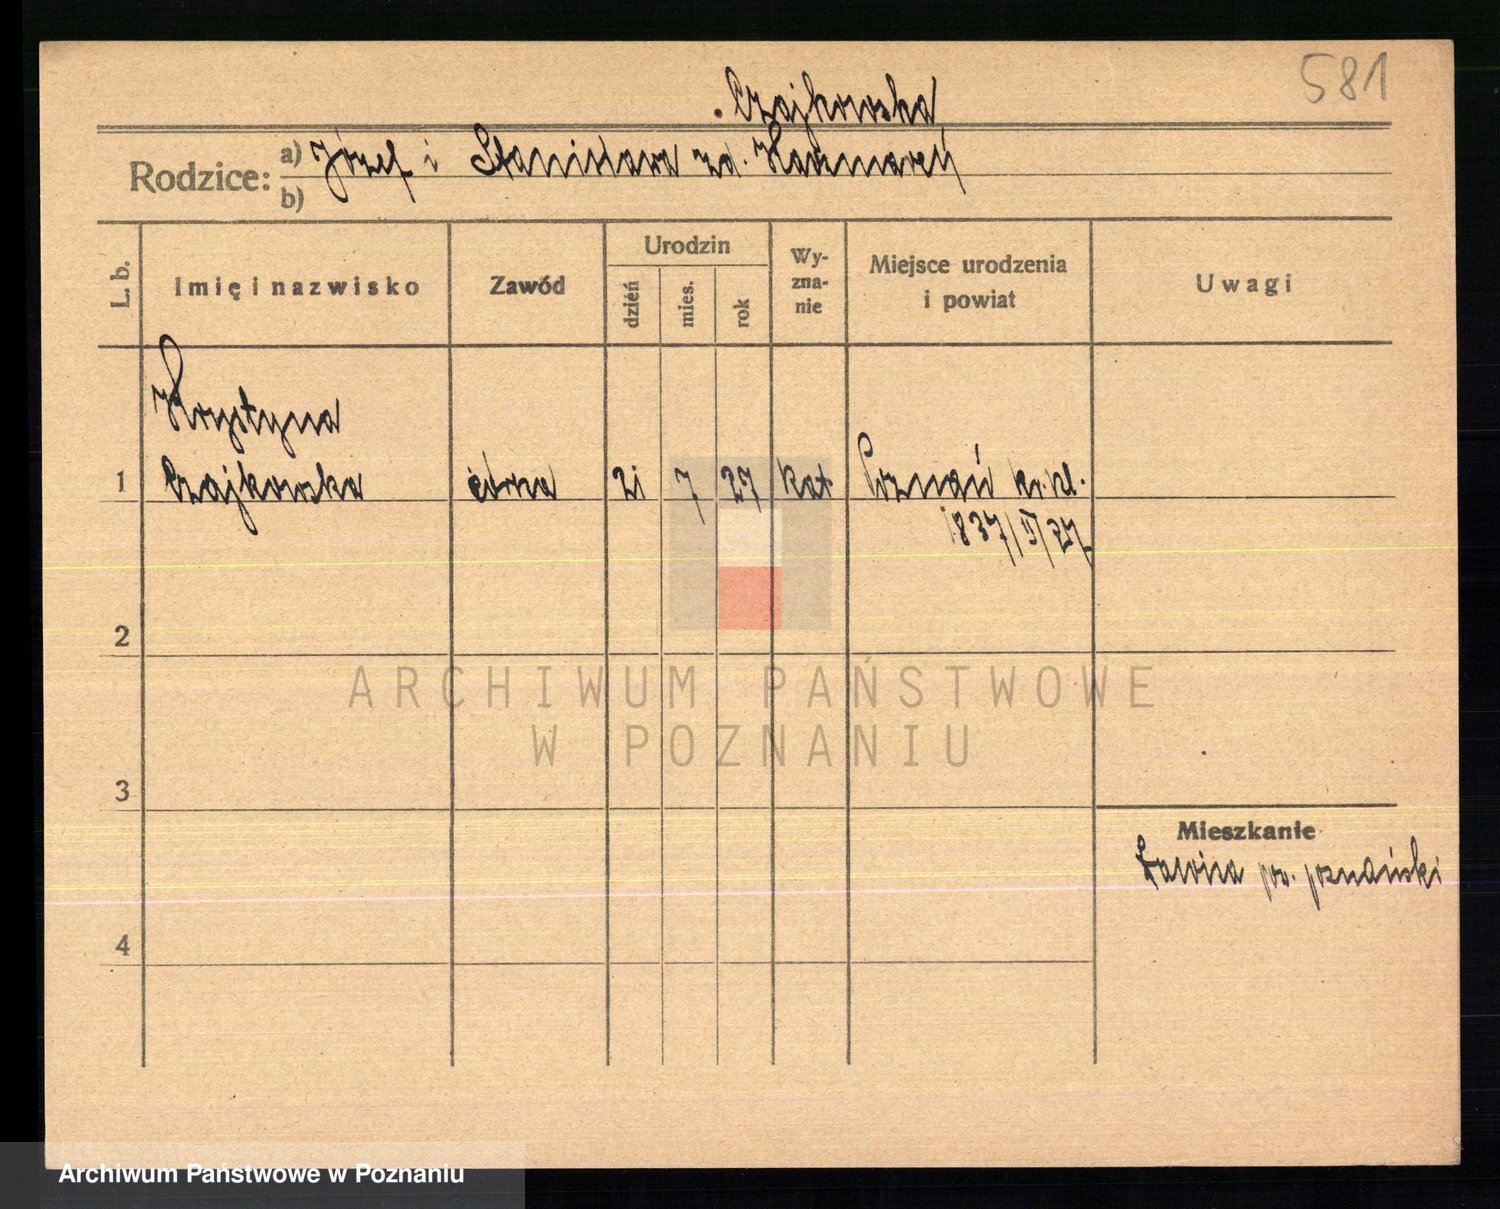 581
Czajkowska
Rodzice: a) Józef i Stanisława zd. Kaczmarek
b)
L. b. Imię i nazwisko Zawód Urodzin dzień mies. rok Wy-zna-nie Miejsce urodzenia i powiat Uwagi
Krystyna
1 Czajkowska córka 21 7 27 kat Poznań
1837/II/27
2
ARCHIWUM PAŃSTWOWE
W POZNANIU
3
Mieszkanie
Ławica pow. poznański
4
Archiwum Państwowe w Poznaniu